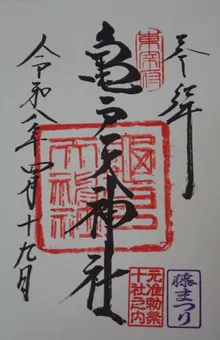 奉拝
東宰府
亀戸天神社
亀戸天神社
令和八年四月十九日
元准勅祭
十社之内
藤まつり